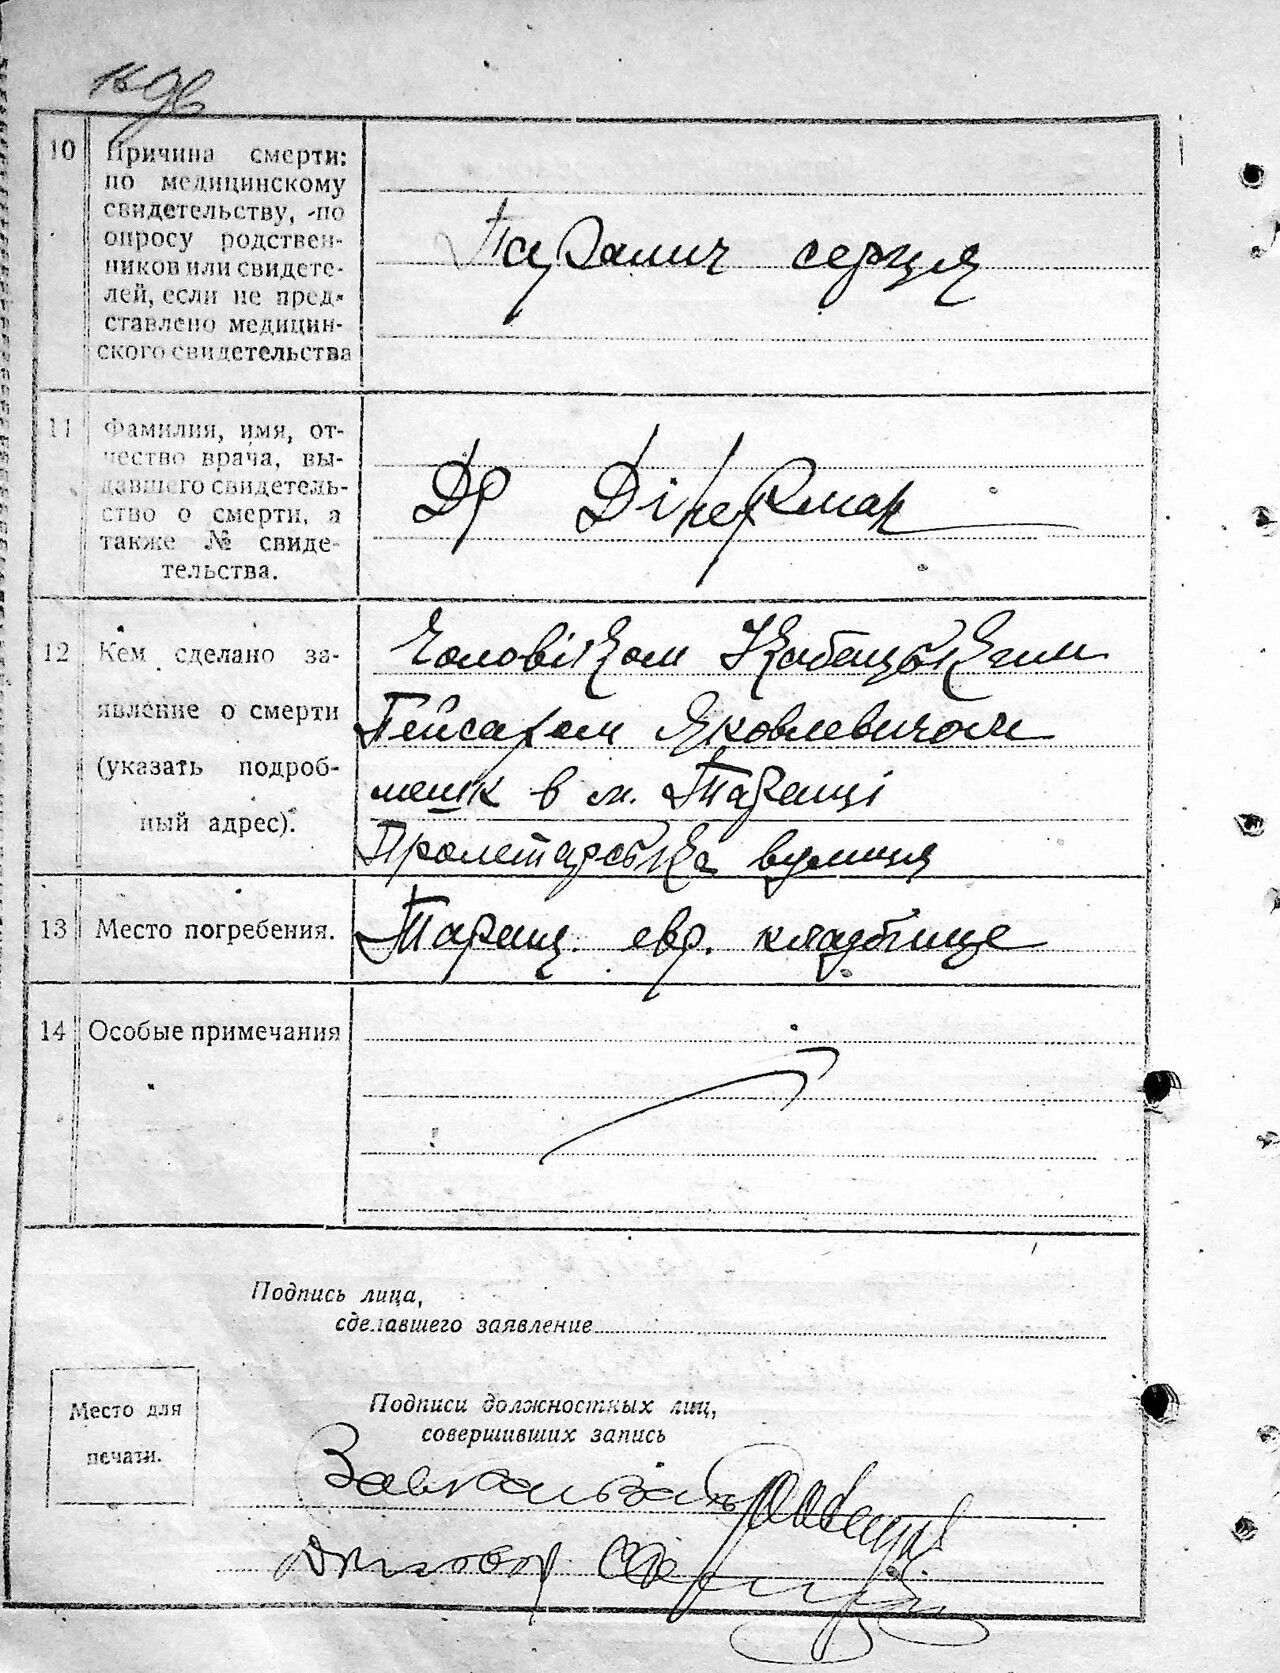 10 Причина смерти:
по медицинскому
свидетельству, -по
опросу родствен-
ников или свидете-
лей, если не пред-
ставлено медицин-
ского свидетельства
Параліч серця
11 Фамилия, имя, от-
чество врача, вы-
давшего свидетель-
ство о смерти, а
также № свиде-
тельства.
Др Дінерман
12 Кем сделано за-
явление о смерти
(указать подроб-
ный адрес).
Чоловіком
Яковлевичом
мешк в м. Таращі
Пролетарська вулиця
13 Место погребения.
Таращ. євр. кладбище
14 Особые примечания
Подпись лица,
сделавшего заявление
Место для
печати.
Подписи должностных лиц,
совершивших запись